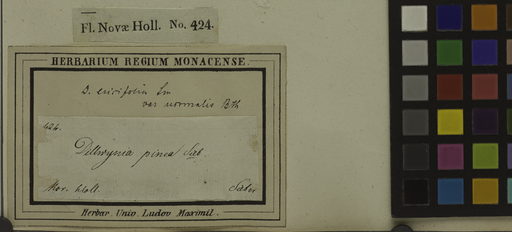 Fl. Novæ Holl. No. 424.
HERBARIUM REGIUM MONACENSE.
D. ericifolia Sm
var normalis Bth
424.
Dillwynia pinea Sieb.
Nov. Holl. Sieber
Herbar. Univ. Ludov. Maximil.